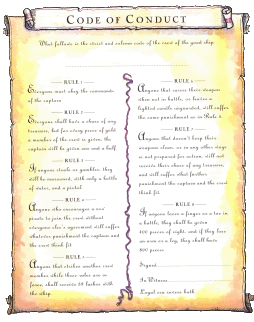 CODE OF CONDUCT
What follows is the strict and solemn code of the crew of the good ship
RULE 1
Everyone must obey the commands
of the captain
RULE 2
Everyone shall have a share of any
treasure, but for every piece of gold
a member of the crew is given, the
captain will be given one and a half
RULE 3
If anyone steals or gambles, they
will be marooned, with only a bottle
of water, and a pistol
RULE 4
Anyone who encourages a new
pirate to join the crew without
everyone else's agreement will suffer
whatever punishment the captain and
the crew think fit
RULE 5
Anyone that strikes another crew
member while these rules are in
force, shall receive 39 lashes with
the whip
RULE 6
Anyone that carries their weapon
when not in battle, or leaves a
lighted candle unguarded, will suffer
the same punishment as in Rule 5
RULE 7
Anyone that doesn't keep their
weapons clean, or in any other way
is not prepared for action, will not
receive their share of any treasure,
and will suffer what further
punishment the captain and the crew
think fit
RULE 8
If anyone loses a finger or a toe in
a battle, they shall be given
400 pieces of eight, and if they lose
an arm or a leg, they shall have
800 pieces
Signed
In Witness